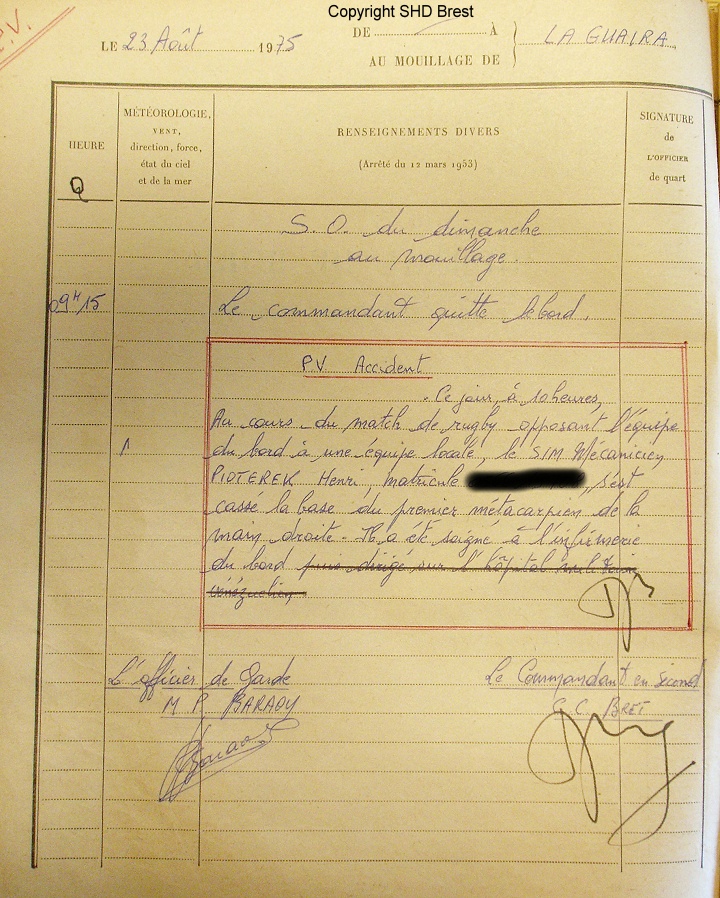 Copyright SHD Brest
P.V.
LE 23 Août 1975 DE — À LA GUAIRA
AU MOUILLAGE DE
HEURE
MÉTÉOROLOGIE,
VENT,
direction, force,
état du ciel
et de la mer
RENSEIGNEMENTS DIVERS
(Arrêté du 12 mars 1953)
SIGNATURE
de
L'OFFICIER
de quart
Q
S.O. du dimanche
au mouillage.
09H15 Le commandant quitte le bord.
P.V Accident
Ce jour, à 10 heures,
Au cours du match de rugby opposant l'équipe
du bord à une équipe locale, le SIM Mécanicien
PIOTEREK Henri, matricule , s'est
cassé la base du premier métacarpien de la
main droite - Il a été soigné à l'infirmerie
du bord puis dirigé sur l'hôpital militaire
vénézuélien
L'officier de Garde
M P. BARAOY
Le Commandant en second
C.C. BRET